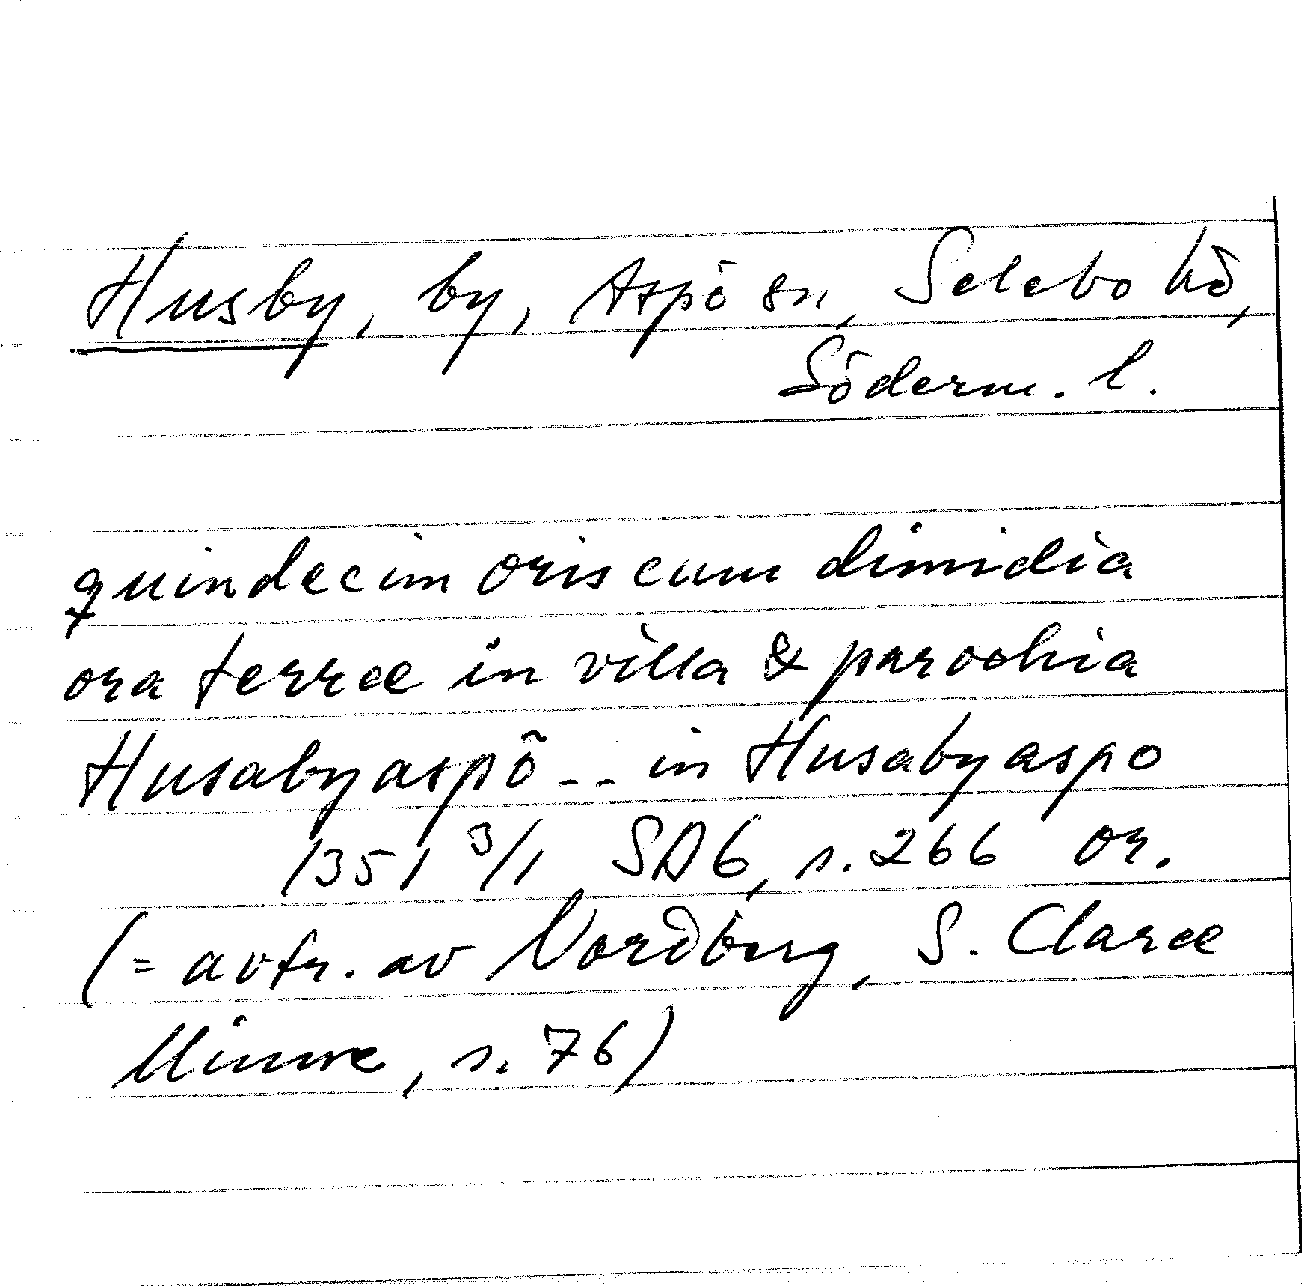 Husby, by, Aspö sn, Selebo hd,
Söderm. l.
quindecim oris cum dimidia
ora terræ in villa & parochia
Husabyaspö -- in Husabyaspo
1351 3/1 SD6, s. 266 or.
(= avtr. av Nordberg, S. Claræ
Minne, s. 76)